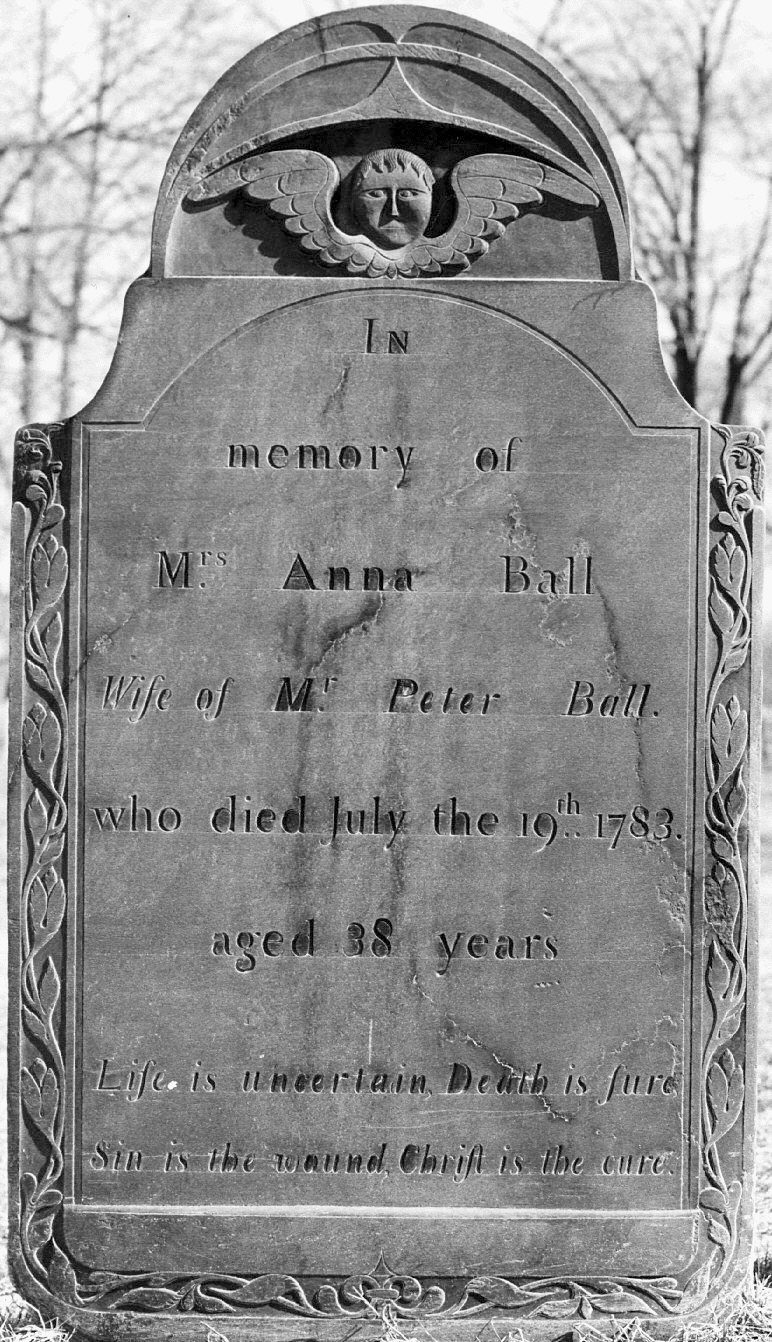 In
memory of
Mrs. Anna Ball
Wife of Mr. Peter Ball.
who died July the 19th. 1783.
aged 38 years
Life is uncertain, Death is ſure
Sin is the wound, Chriſt is the cure.